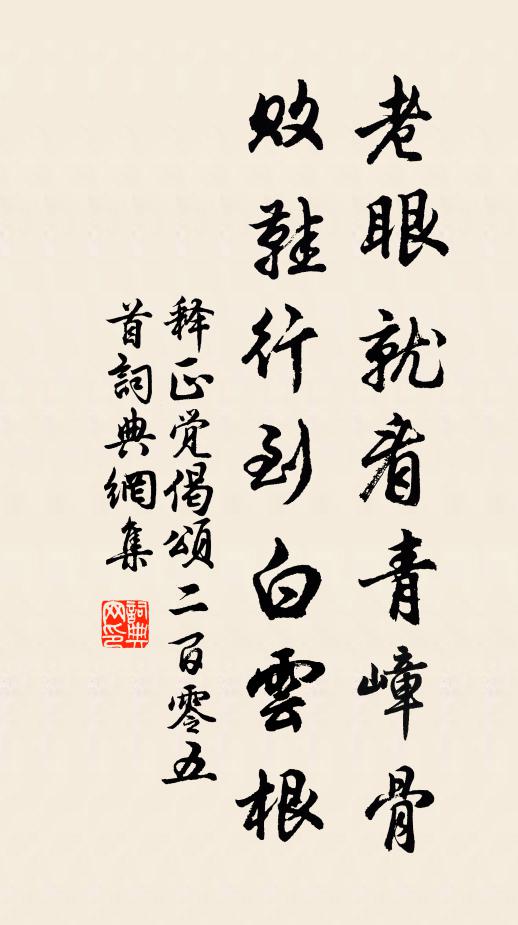 老眼就看青嶂骨
败鞋行到白雲根
释正觉偈頌二百零五
首詞典網集
詞典网印